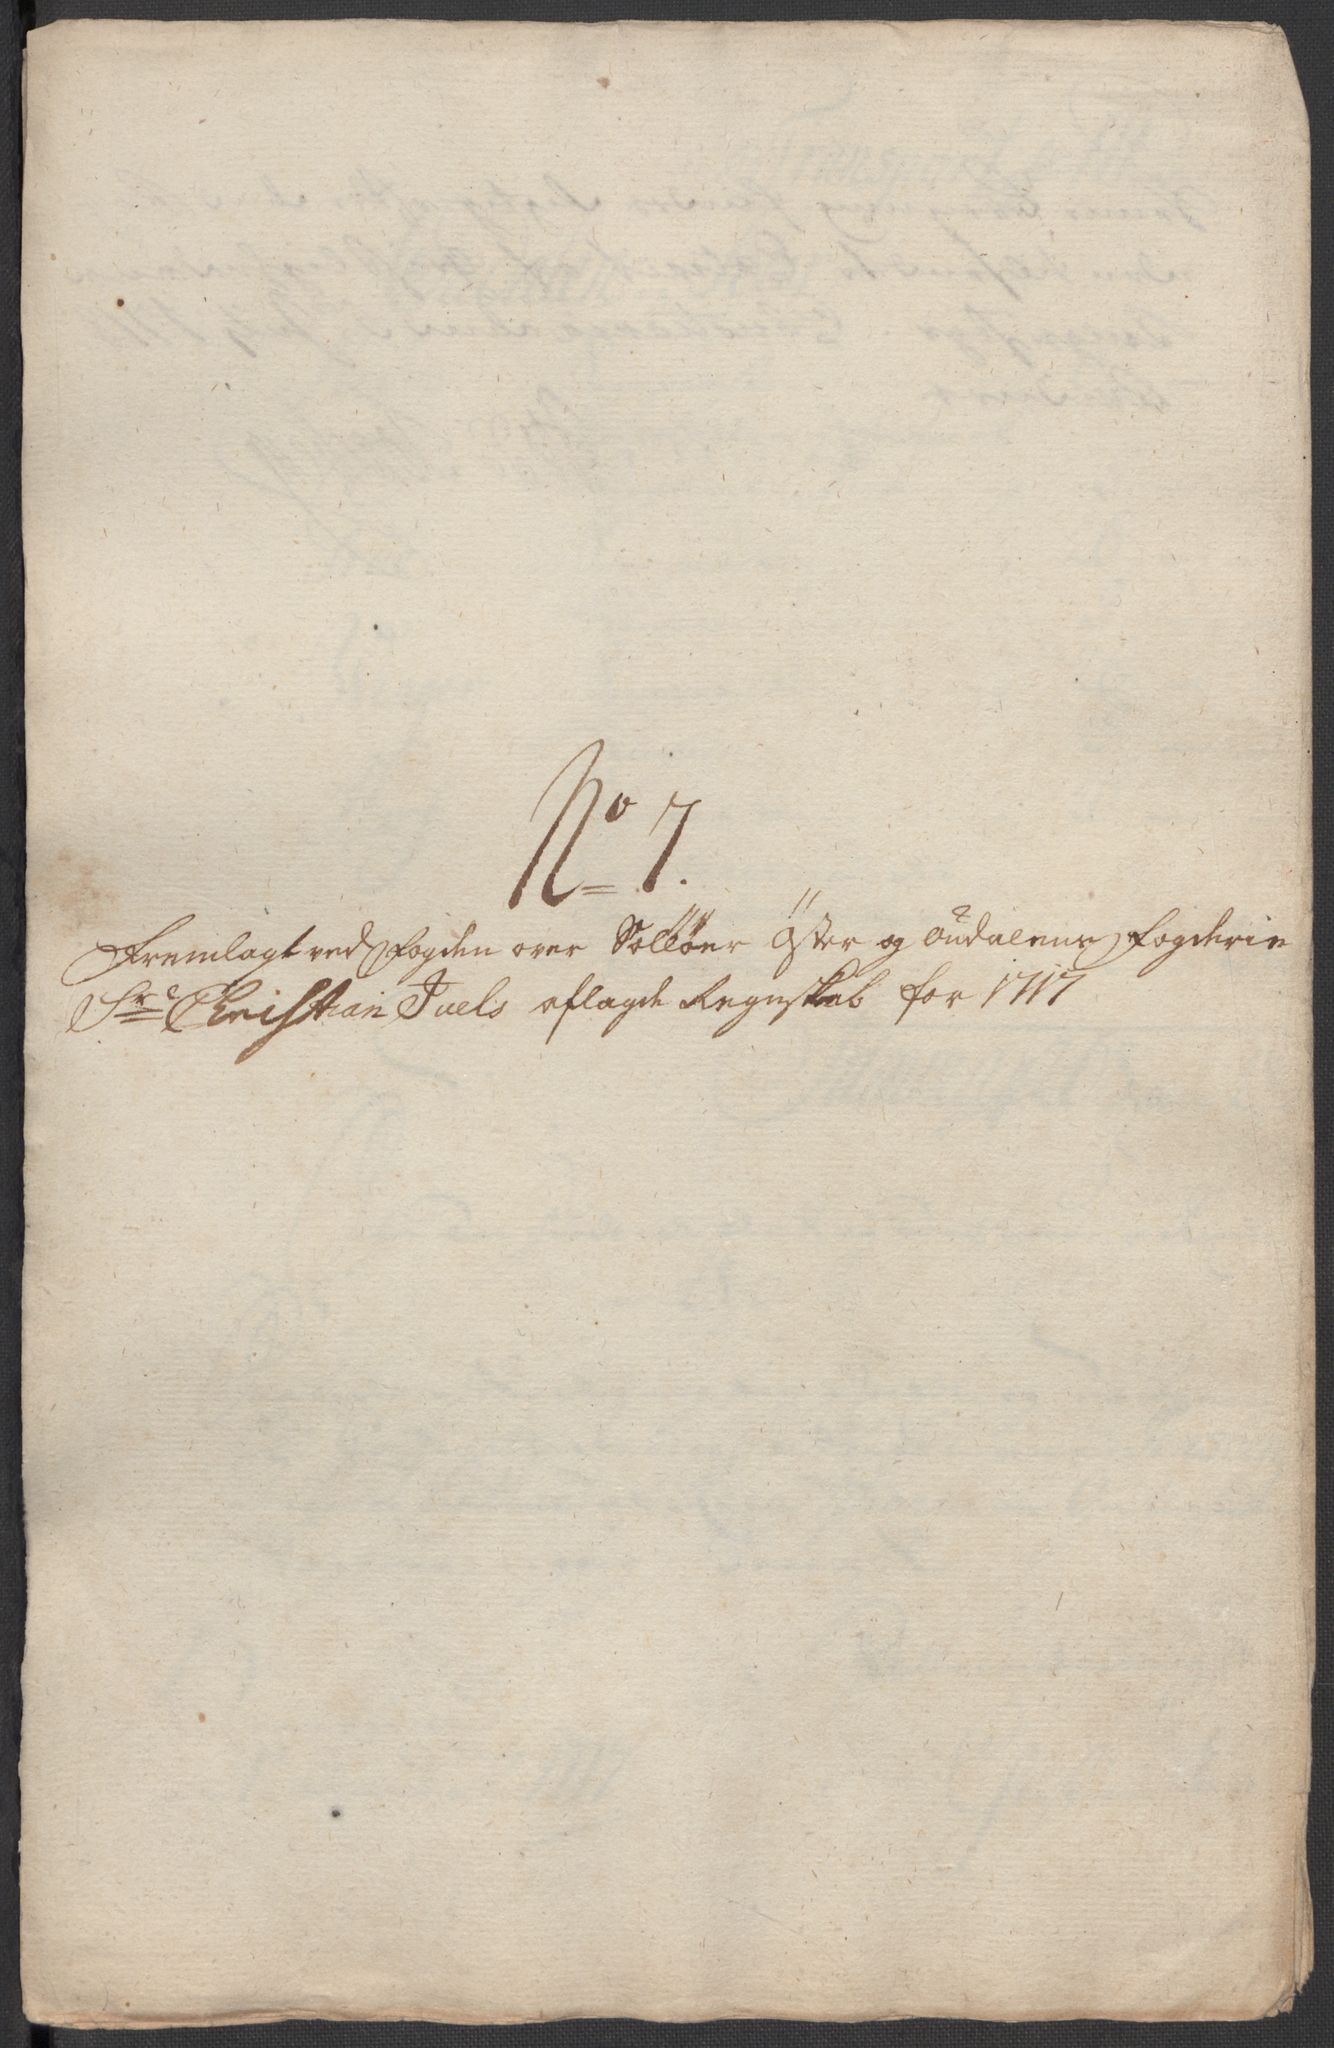 No 7.
Fremlagt ved Fogden over Solløer Øster og Oudalens Fogderie
Sr Christian Juels aflagde Regnskab for 1717